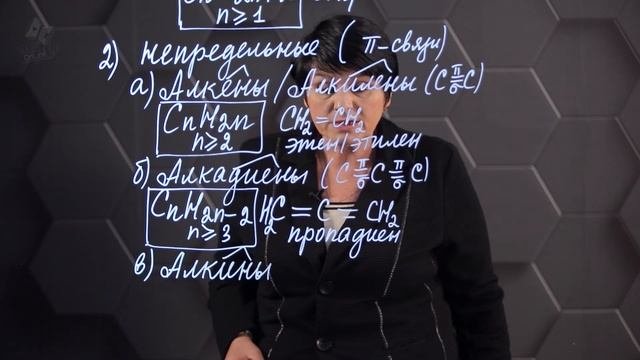 n ≥ 1
2) непредельные ( π-связи)
а) Алкены / Алкилены (C π/σ C)
CnH2n CH2 = CH2
n ≥ 2 этен/этилен
б) Алкадиены ( C π/σ C π/σ C)
CnH2n-2 H2C = C = CH2
n ≥ 3 пропадиен
в) Алкины